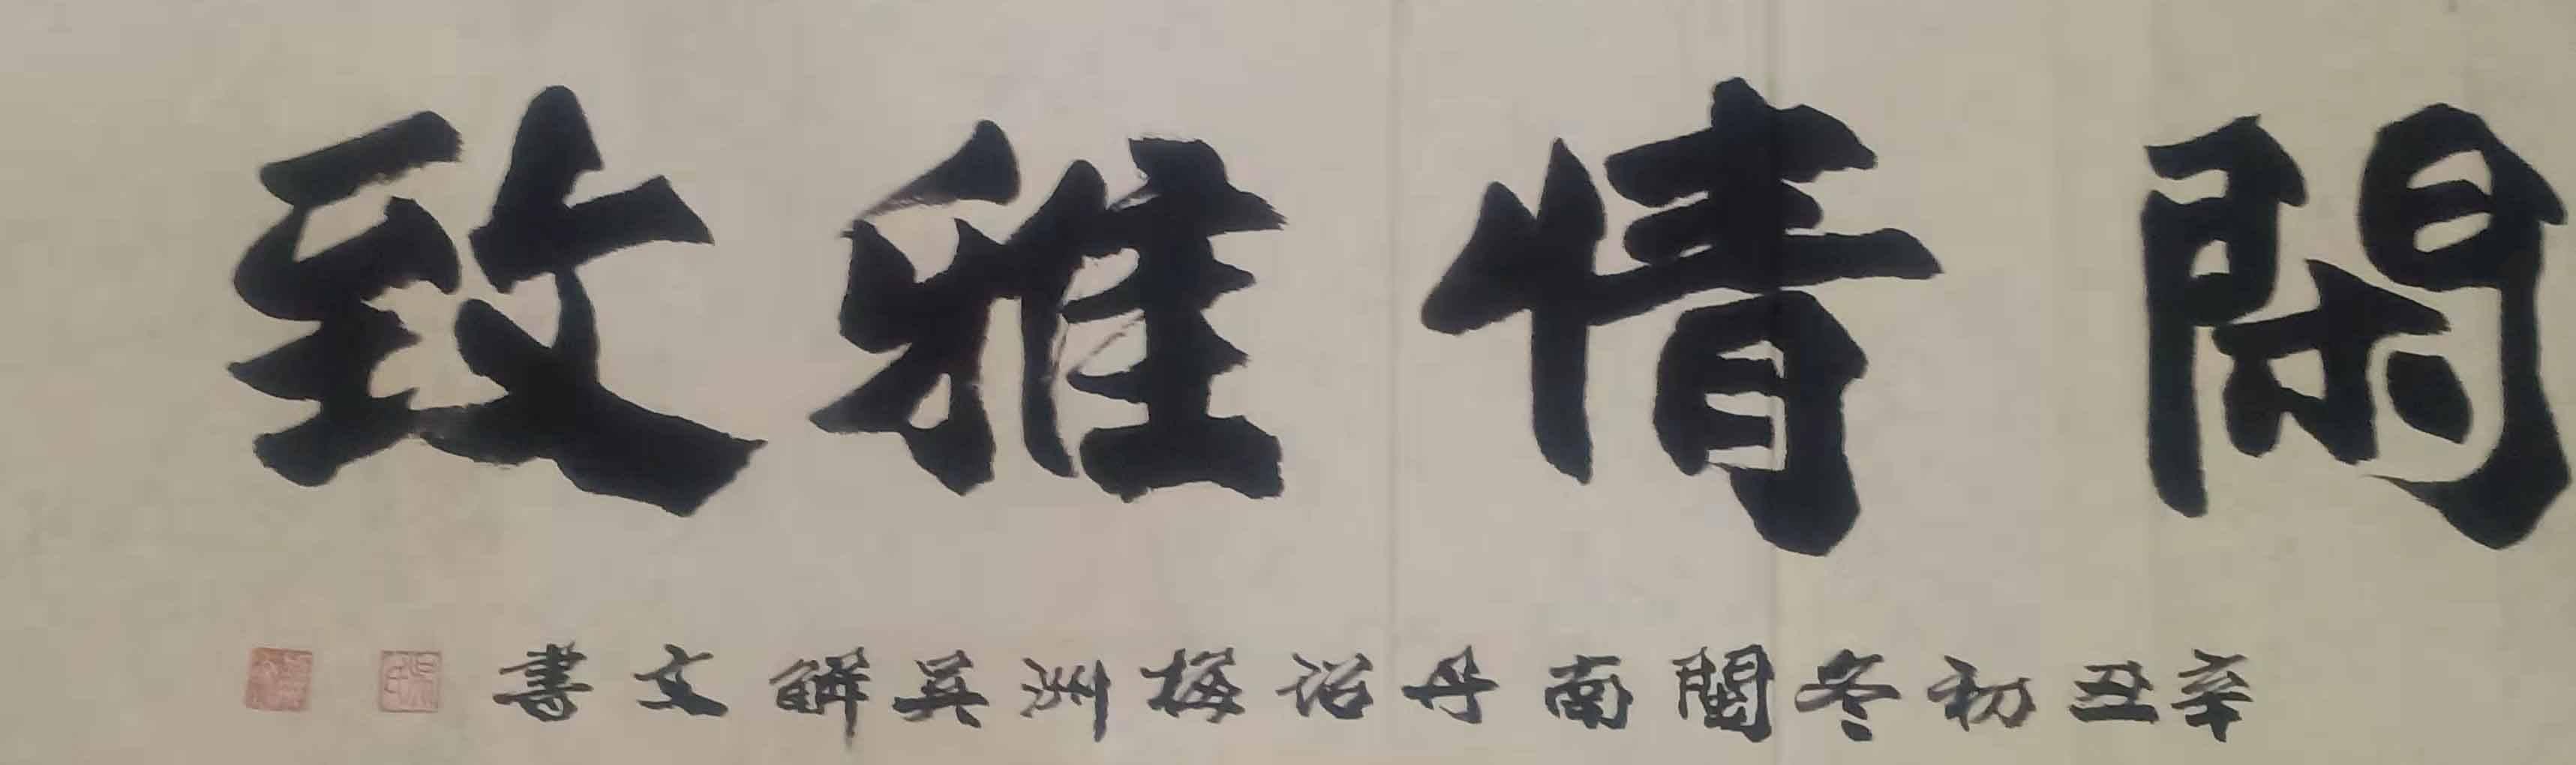 閑情雅致
辛丑初冬閩南丹詔梅洲吴解文書